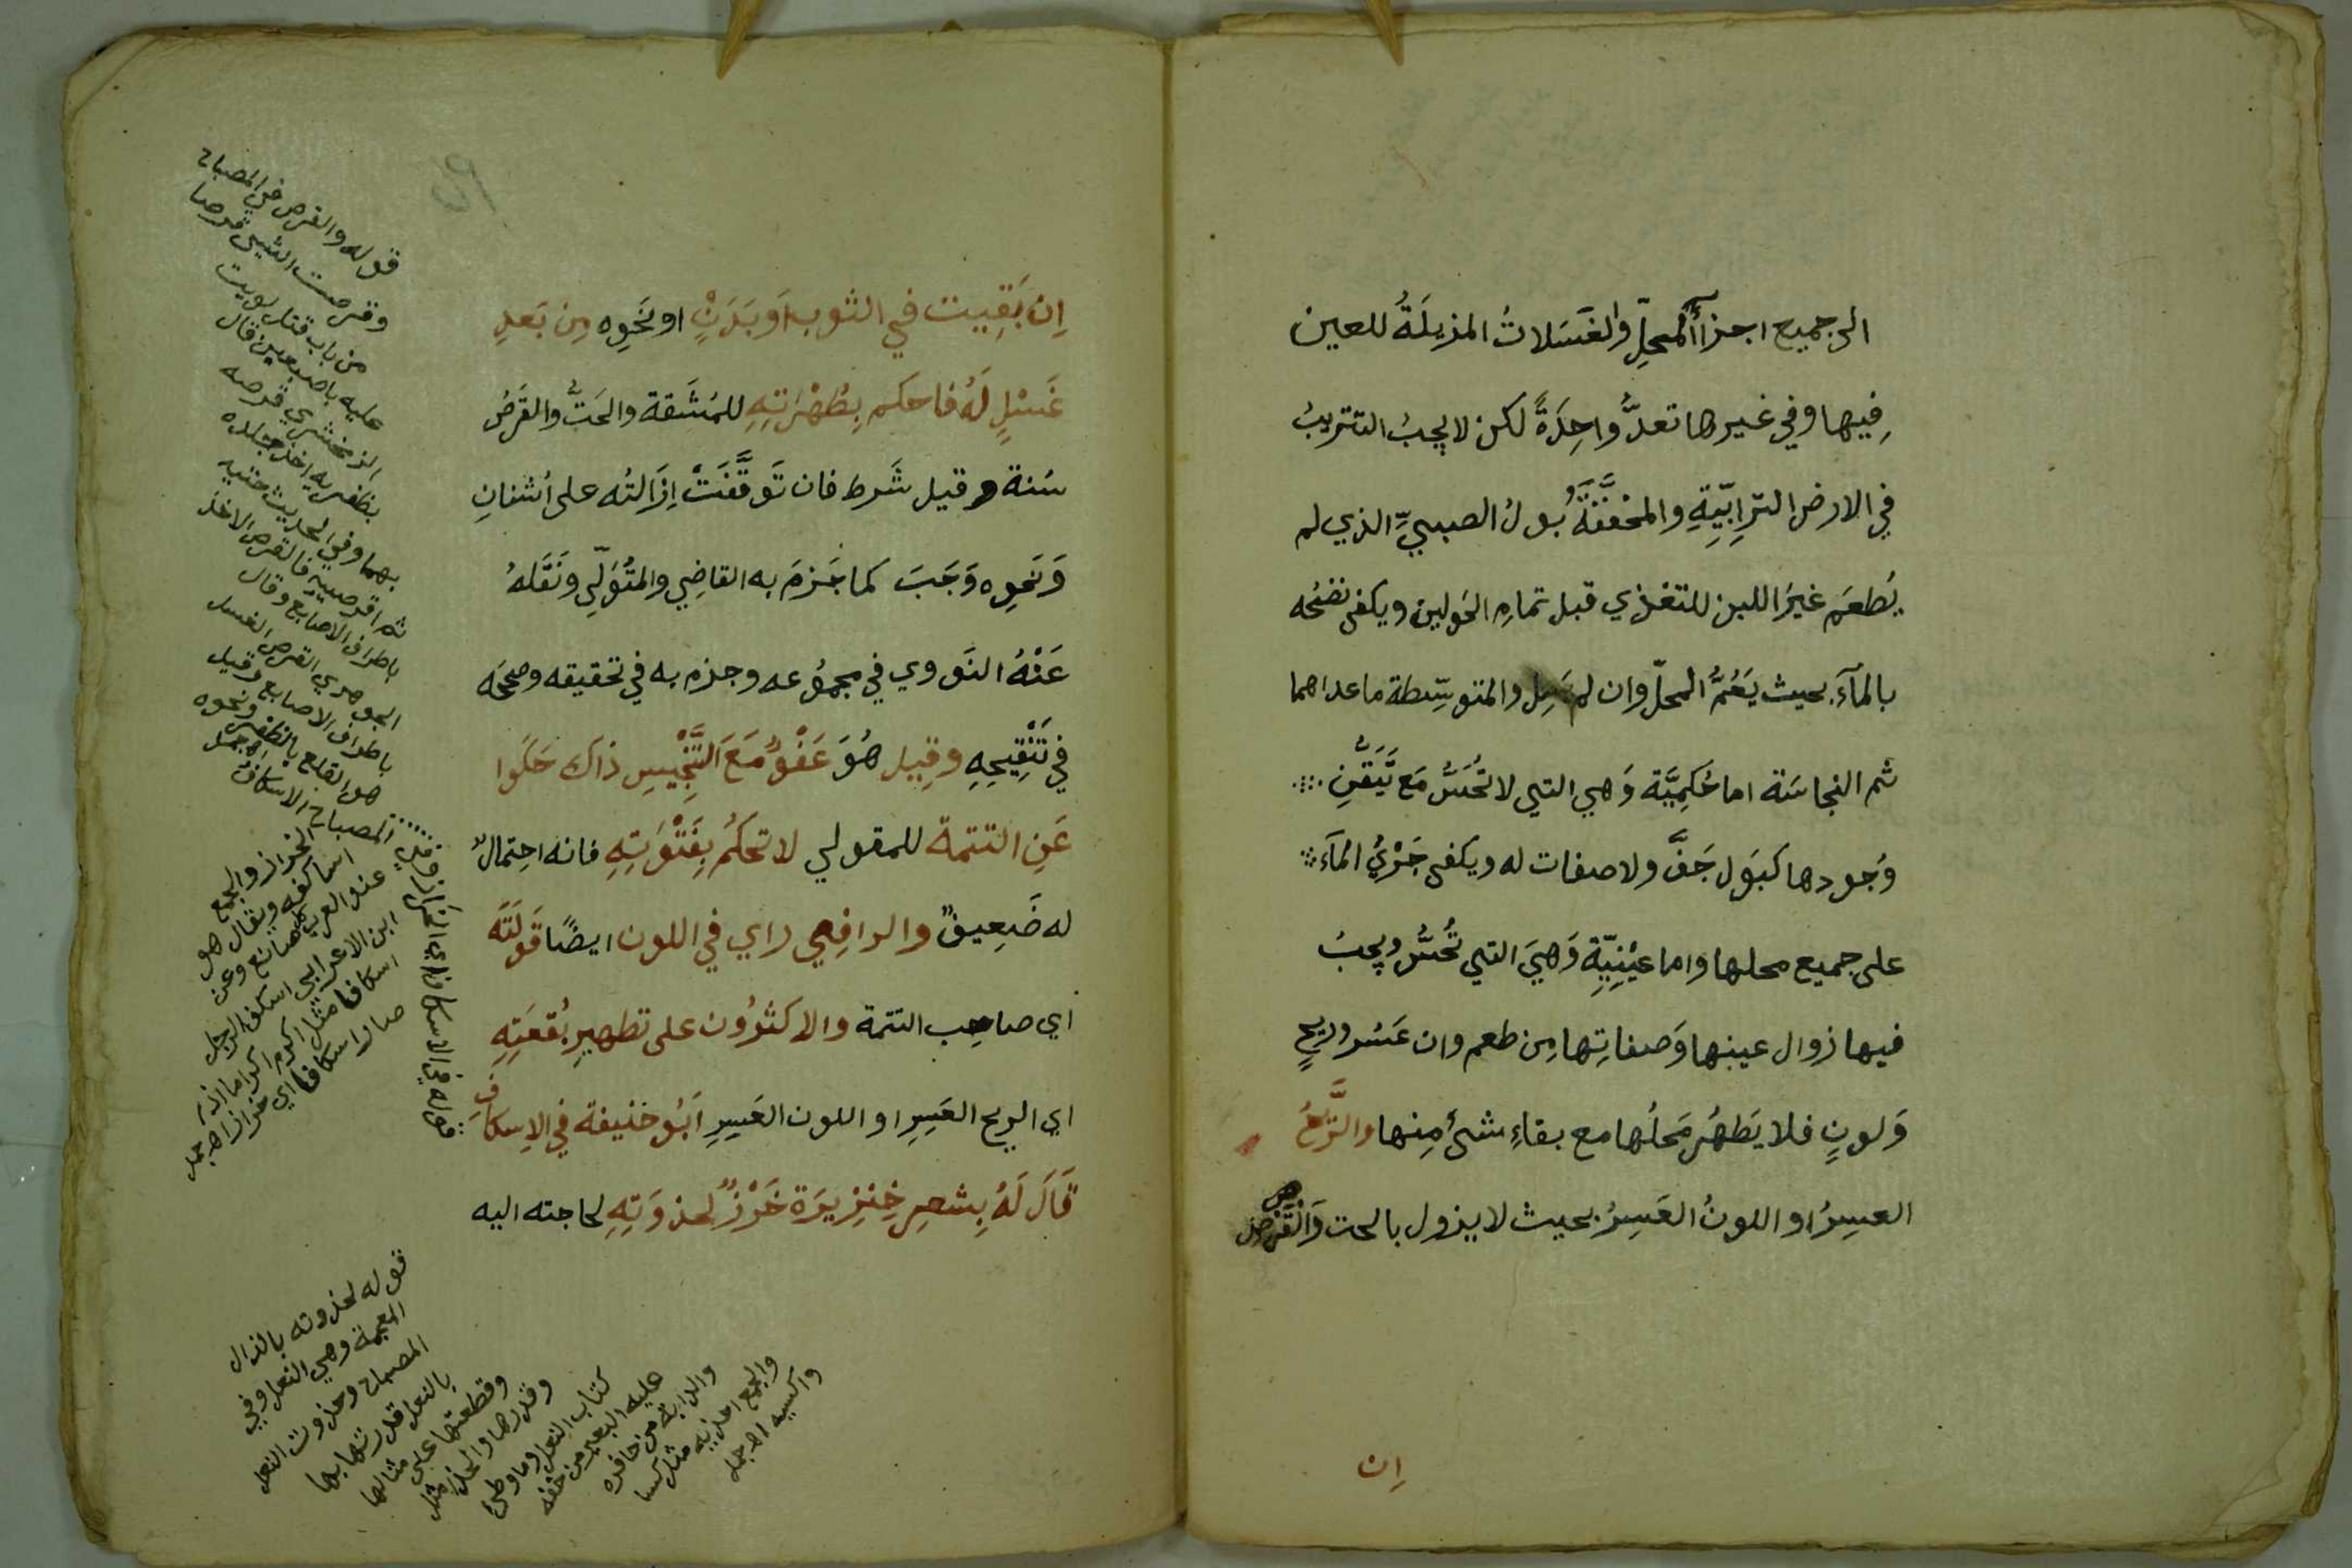 الى جميع اجزآ المحلِّ والغَسَلاتُ المزيلَةُ للعين
فِيها وفي غيرها تعدُّ واحِدَةً لكن لا يجبُ التتريبُ
في الارض الترابِيّةِ والمخففَّةُ بول الصبيِّ الذي لم
يُطعَم غيرَ اللبن للتغذي قبل تمام الحَولين ويكفى نضحُه
بالمآء بحيث يَعُمُّ المحلّ وان لم يَسِل والمتوسِّطة ما عداهما
ثم النجاسَة اما حُكمِيَّة وَهي التي لا تُحَسُّ مَع تَيَقُّنِ
وُجودها كبَول جَفَّ ولا صفات له ويكفى جَرْيُ المآءِ
على جميع محلها واما عَيْنِيّةِ وَهيَ التي تُحسُّ ويجبُ
فيها زوال عينها وَصفاتِها مِن طعم وان عَسُر وريحٍ
وَلونٍ فلا يَطهُر مَحلُها مع بقاءِ شئ مِنها والرِّيحُ
العسِرُ او اللونُ العَسِرُ بحيث لا يزول بالحت وَالْقَرْصِ
اِن
اِن بَقِيت في الثوب اَو بَدَنٍ او نَحوِه مِن بَعدِ
غَسْلٍ لَهُ فاحكم بِطُهْرَاتِهِ للمَشَقة والحَتُّ والقَرْصُ
سُنة وقيل شَرط فان تَوقَّفَتْ اِزَالتُه على اُشنانِ
وَنَحوِه وَجَبَ كما جَزمَ به القاضِي والمتُوَلّي ونَقَلهُ
عَنْهُ النَووي في مجموُعه وجزم به في تحقيقه وصححَه
في تَنْقِيحِهِ وقِيل هُوَ عَفْوٌ مَعَ التَّنْجِيسِ ذاكَ حَكَوا
عَنِ التتمة للمتولي لا تحكُم بِفَتْوَتِهِ فانه احِتمالٌ
له ضَعِيفٌ والرافِعي راي في اللون ايضًا قَولَتَه
اي صاحِب التتمة والاكثرُون على تطهيرِ بُقعَتِهِ
اي الريح العَسِرِ او اللون العَسِرِ اَبُو حَنيفة في الاِسكافِ
قَالَ لَهُ بِشعرِ خِنزِيرَة خَرْزٌ لحذوَتِهِ لحاجته اليه
قوله والقرص في المصباح
وقرصت الشيئ قرصا
من باب قتل لويت
عليه باصبعين قال
الزمخشري قرصه
بظفريه اخذ جلده
بهما وفي الحديث حتيه
ثم اقرصيه فالقرص الاخذ
باطراف الاصابع وقال
الجوهري القرص الغسل
باطراف الاصابع وقيل
هو القلع بالظفر ونحوه
المصباح الاسكاف
الخراز والجمع
اساكفه ويقال هو
عند العرب كل صانع وعن
ابن الاعرابي اسكف الرجل
اسكافا مثل اكرم اكراما اذا
صار اسكافا اي خرازا اهجمل
قوله لحذوته بالذال
المعجمة وهي النعل وفي
المصباح وحذوت النعل
بالنعل قدرتها بها
وقطعتها على مثالها
وقدرها والحذا مثل
كتاب النعل وما وطئ
عليه البعير من خفه
والدابة من حافره
والجمع احذيه مثل كسا
واكسيه اهجمل